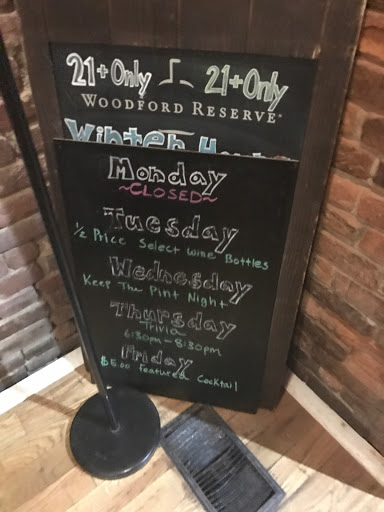 21+Only 21+Only
WOODFORD RESERVE®
Winter
Monday
~CLOSED~
Tuesday
1/2 Price Select Wine Bottles
Wednesday
Keep The Pint Night
Thursday
Trivia
6:30pm-8:30pm
Friday
$5.00 Featured Cocktail